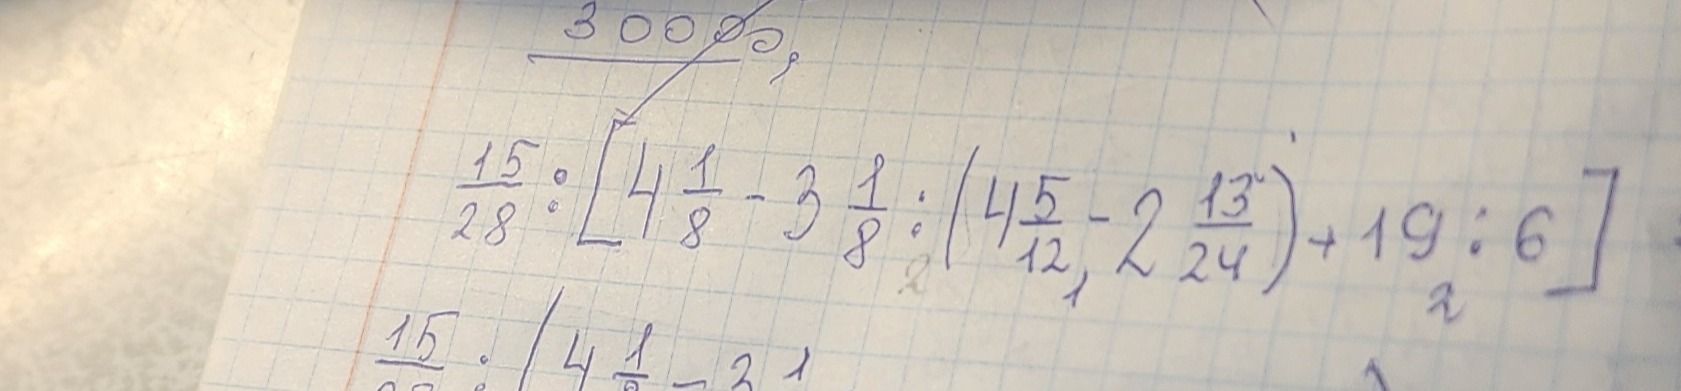 30000,
15/28 : [4 1/8 - 3 1/8 : (4 5/12 - 2 13/24) + 19 : 6]
2 1 2
15 : (4 1 - 3 1